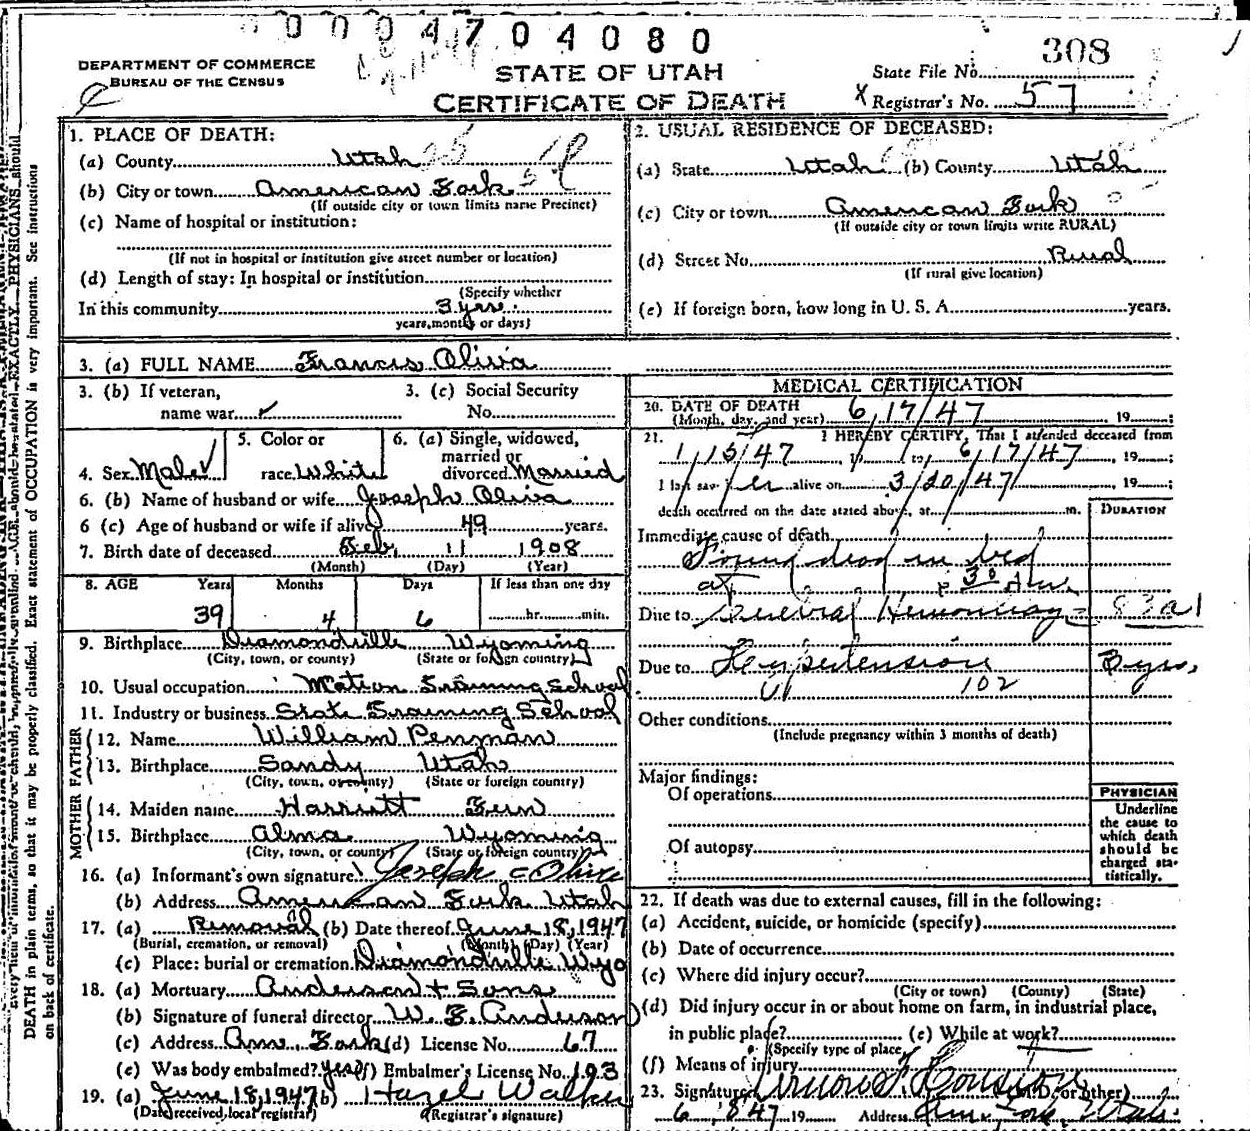 0004704080
DEPARTMENT OF COMMERCE
BUREAU OF THE CENSUS
STATE OF UTAH
CERTIFICATE OF DEATH
State File No. 308
X Registrar's No. 57
1. PLACE OF DEATH:
(a) County Utah
(b) City or town American Fork
(If outside city or town limits name Precinct)
(c) Name of hospital or institution:
(If not in hospital or institution give street number or location)
(d) Length of stay: In hospital or institution
(Specify whether
In this community 3 yrs.
years, months or days)
2. USUAL RESIDENCE OF DECEASED:
(a) State Utah (b) County Utah
(c) City or town American Fork
(If outside city or town limits write RURAL)
(d) Street No. Rural
(If rural give location)
(e) If foreign born, how long in U. S. A. years.
3. (a) FULL NAME Francis Oliva
3. (b) If veteran,
name war ✓
3. (c) Social Security
No.
4. Sex Male
5. Color or
race White
6. (a) Single, widowed,
married or
divorced Married
6. (b) Name of husband or wife Joseph Oliva
6 (c) Age of husband or wife if alive 49 years.
7. Birth date of deceased Feb. 11 1908
(Month) (Day) (Year)
8. AGE Years Months Days If less than one day
39 4 6 hr. min.
9. Birthplace Diamondville Wyoming
(City, town, or county) (State or foreign country)
10. Usual occupation Matron Training School
11. Industry or business State Training School
FATHER
12. Name William Penman
13. Birthplace Sandy Utah
(City, town, or county) (State or foreign country)
MOTHER
14. Maiden name Harriett Fern
15. Birthplace Alma Wyoming
(City, town, or county) (State or foreign country)
16. (a) Informant's own signature Joseph Oliva
(b) Address American Fork Utah
17. (a) Removal (b) Date thereof June 18, 1947
(Burial, cremation, or removal) (Month) (Day) (Year)
(c) Place: burial or cremation Diamondville Wyo
18. (a) Mortuary Anderson + Sons
(b) Signature of funeral director W. E. Anderson
(c) Address Am. Fork (d) License No. 67
(e) Was body embalmed? yes (f) Embalmer's License No. 193
19. (a) June 18, 1947 (b) Hazel Walker
(Date received, local registrar) (Registrar's signature)
MEDICAL CERTIFICATION
20. DATE OF DEATH
(Month, day, and year) 6/17/47 , 19 ;
21. I HEREBY CERTIFY, That I attended deceased from
1/15/47 , to 6/17/47 , 19 ;
I last saw er alive on 3/20/47 , 19 ;
death occurred on the date stated above, at m.
DURATION
Immediate cause of death
Found dead in bed
at 30 A.m.
Due to Cerebral Hemorrhage 83a1
Due to Hypertension 3 yrs,
102
Other conditions
(Include pregnancy within 3 months of death)
Major findings:
Of operations
Of autopsy
PHYSICIAN
Underline
the cause to
which death
should be
charged sta-
tistically.
22. If death was due to external causes, fill in the following:
(a) Accident, suicide, or homicide (specify)
(b) Date of occurrence
(c) Where did injury occur?
(City or town) (County) (State)
(d) Did injury occur in or about home on farm, in industrial place,
in public place? (e) While at work?
(Specify type of place)
(f) Means of injury
23. Signature (M.D. or other)
19 Address Am. Fork, Utah
DEATH in plain terms, so that it may be properly classified. Exact statement of OCCUPATION is very important. See instructions
on back of certificate.